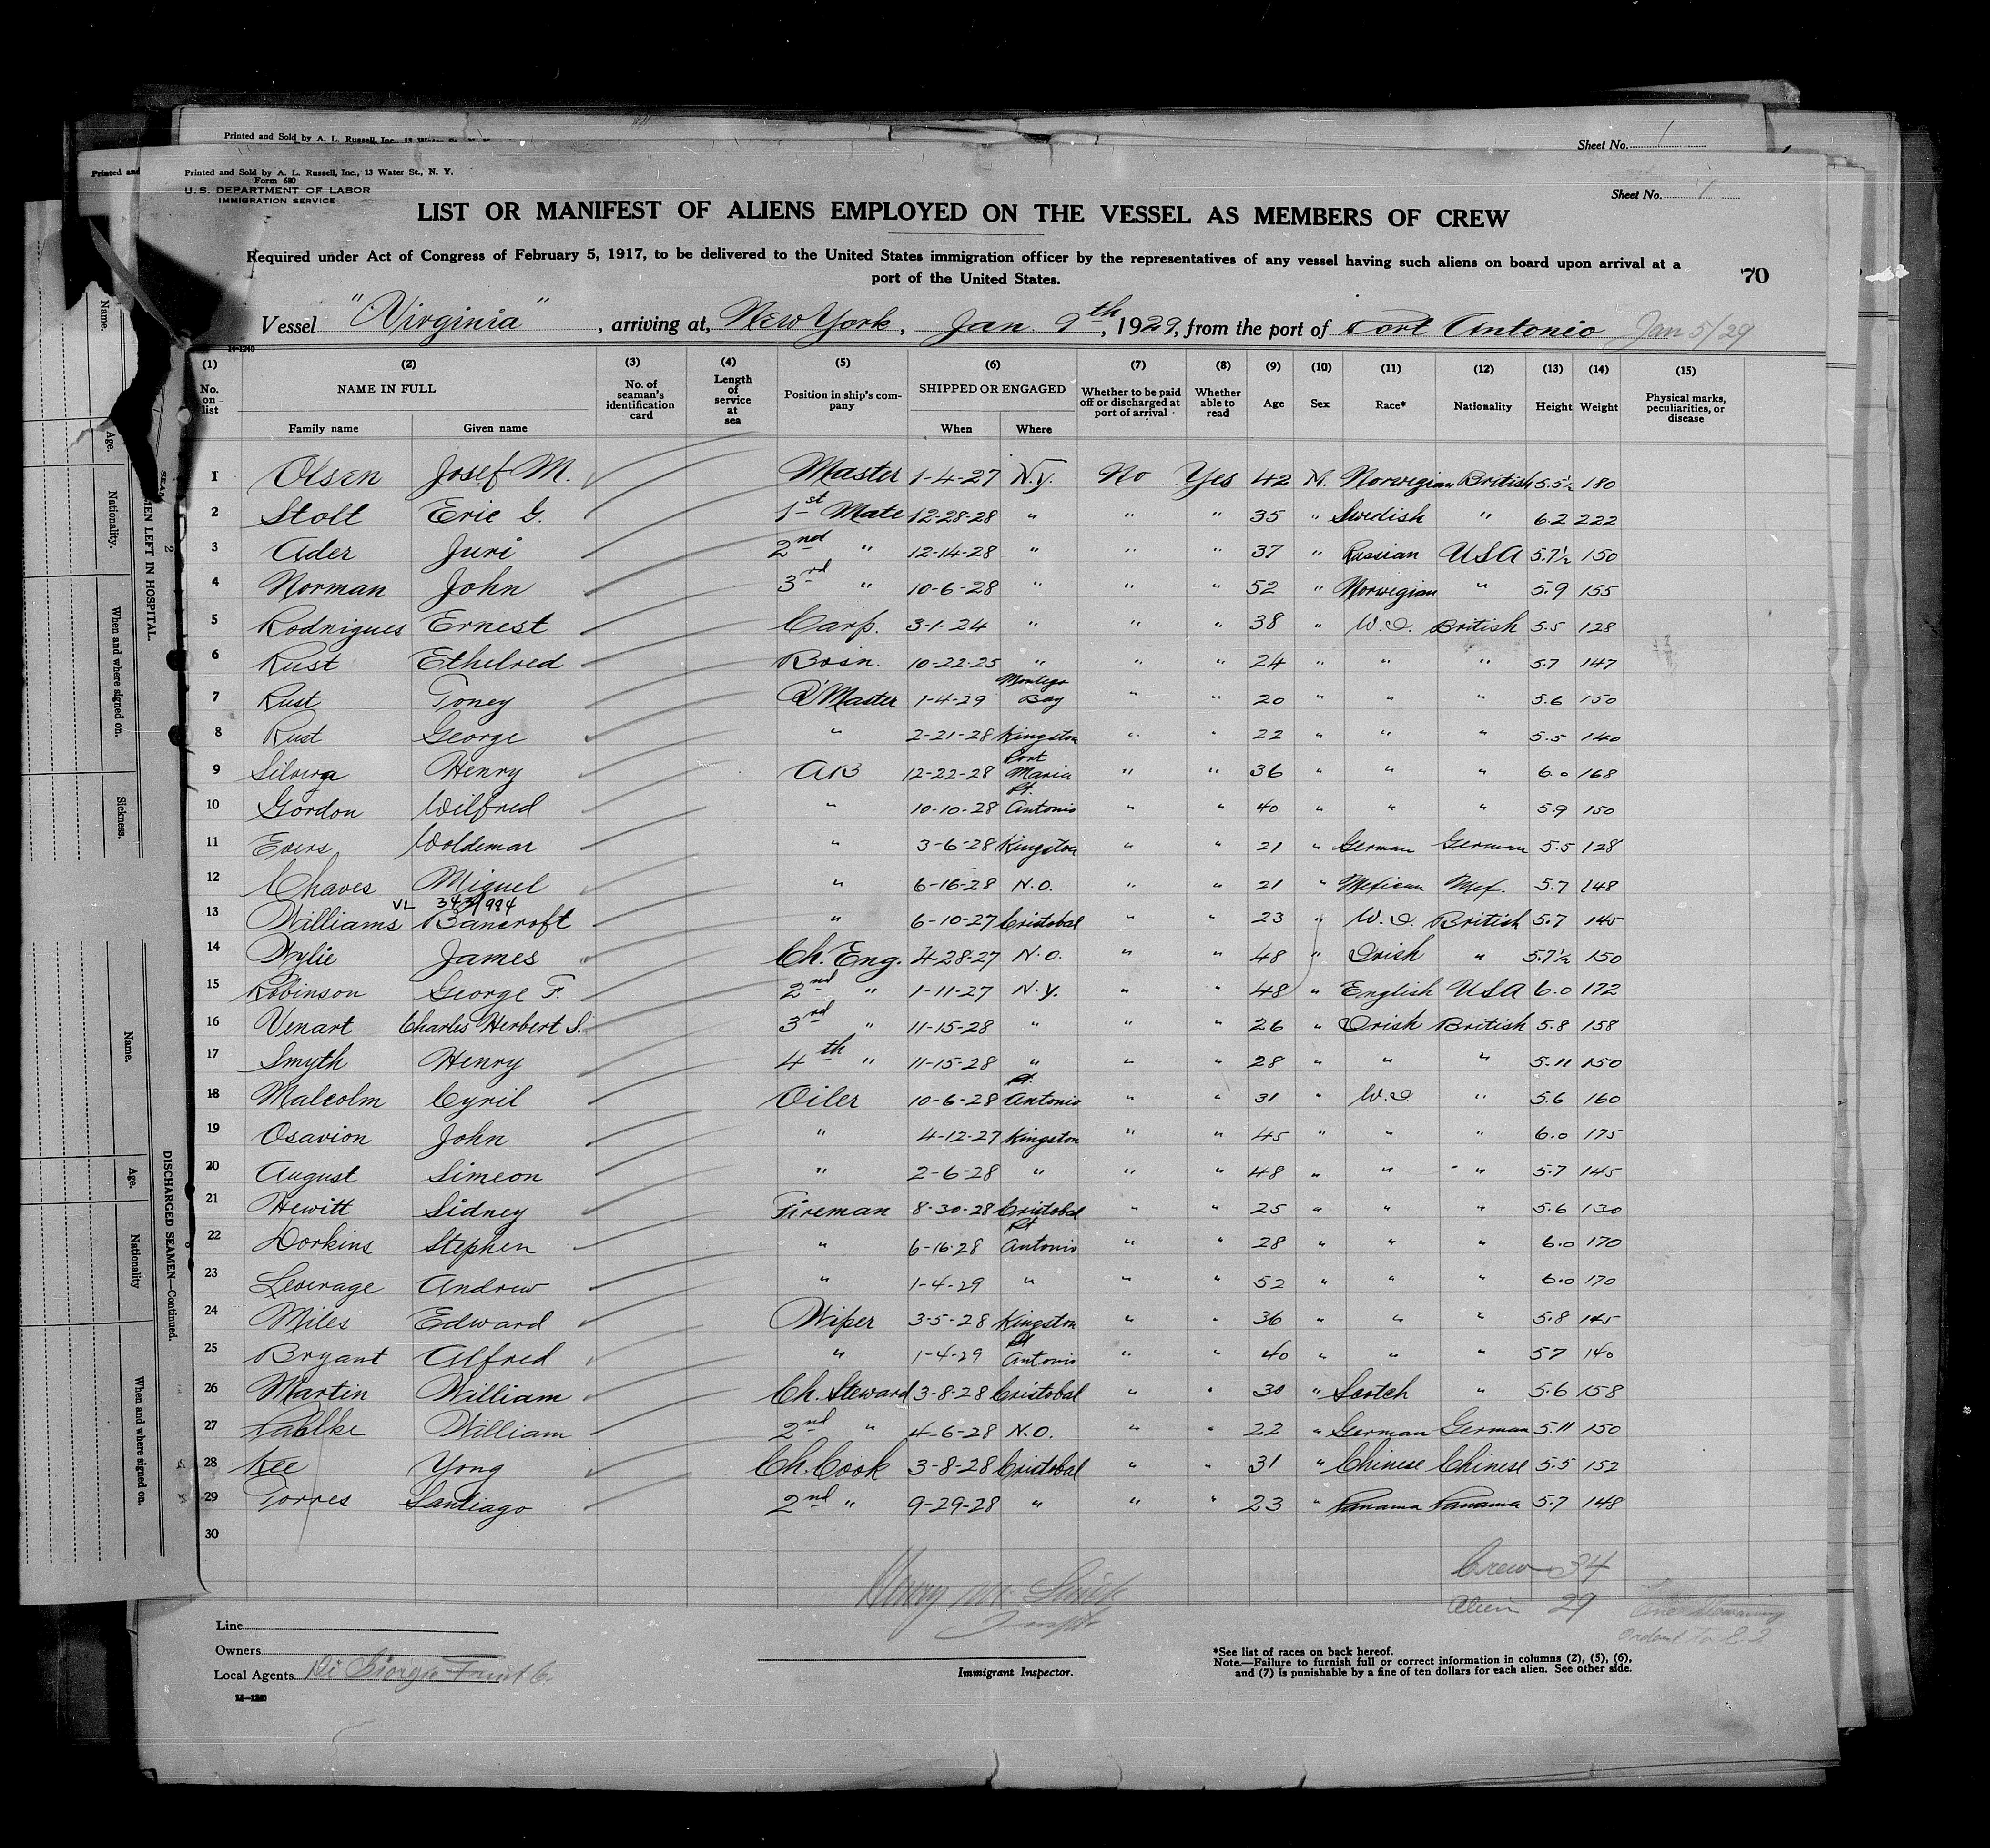 Printed and Sold by A. L. Russell, Inc., 13 Water St., N. Y.
Sheet No. 1
Printed and
Printed and Sold by A. L. Russell, Inc., 13 Water St., N. Y.
Form 680
U. S. DEPARTMENT OF LABOR
IMMIGRATION SERVICE
Sheet No. 1
LIST OR MANIFEST OF ALIENS EMPLOYED ON THE VESSEL AS MEMBERS OF CREW
Required under Act of Congress of February 5, 1917, to be delivered to the United States immigration officer by the representatives of any vessel having such aliens on board upon arrival at a
port of the United States.
70
Vessel "Virginia", arriving at, New York, Jan 9th, 1929, from the port of Port Antonio Jan 5/29
14-1240
(1) (2) (3) (4) (5) (6) (7) (8) (9) (10) (11) (12) (13) (14) (15)
No. on list NAME IN FULL No. of seaman's identification card Length of service at sea Position in ship's company SHIPPED OR ENGAGED Whether to be paid off or discharged at port of arrival Whether able to read Age Sex Race* Nationality Height Weight Physical marks, peculiarities, or disease
Family name Given name When Where
1 Olsen Josef M. Master 1-4-27 N.Y. No Yes 42 M. Norwegian British 5.5½ 180
2 Stolt Eric G. 1st Mate 12-28-28 " " " 35 " Swedish " 6.2 222
3 Ader Juri 2nd " 12-14-28 " " " 37 " Russian USA 5.7½ 150
4 Norman John 3rd " 10-6-28 " " " 52 " Norwegian " 5.9 155
5 Rodnigues Ernest Carp. 3-1-24 " " " 38 " W.I. British 5.5 128
6 Rust Ethelred Bosn. 10-22-25 " " " 24 " " " 5.7 147
7 Rust Toney Q'Master 1-4-29 Montego Bay " " 20 " " " 5.6 150
8 Rust George " 2-21-28 Kingston " " 22 " " " 5.5 140
9 Silvera Henry AB 12-22-28 Port Maria " " 36 " " " 6.0 168
10 Gordon Wilfred " 10-10-28 Pt. Antonio " " 40 " " " 5.9 150
11 Evers Woldemar " 3-6-28 Kingston " " 21 " German German 5.5 128
12 Chaves Miguel " 6-16-28 N.O. " " 21 " Mexican Mex. 5.7 148
VL 343/984
13 Williams Bancroft " 6-10-27 Cristobal " " 23 " W.I. British 5.7 145
14 Wylie James Ch. Eng. 4-28-27 N.O. " " 48 " Irish " 5.7½ 150
15 Robinson George F. 2nd " 1-11-27 N.Y. " " 48 " English USA 6.0 172
16 Venart Charles Herbert S. 3rd " 11-15-28 " " " 26 " Irish British 5.8 158
17 Smyth Henry 4th " 11-15-28 " " " 28 " " " 5.11 150
18 Malcolm Cyril Oiler 10-6-28 Pt. Antonio " " 31 " W.I. " 5.6 160
19 Osavion John " 4-12-27 Kingston " " 45 " " " 6.0 175
20 August Simeon " 2-6-28 " " " 48 " " " 5.7 145
21 Hewitt Sidney Fireman 8-30-28 Cristobal " " 25 " " " 5.6 130
22 Dorkins Stephen " 6-16-28 Pt Antonio " " 28 " " " 6.0 170
23 Leverage Andrew " 1-4-29 " " " 52 " " " 6.0 170
24 Miles Edward Wiper 3-5-28 Kingston " " 36 " " " 5.8 145
25 Bryant Alfred " 1-4-29 Pt Antonio " " 40 " " " 57 140
26 Martin William Ch. Steward 3-8-28 Cristobal " " 30 " Scotch " 5.6 158
27 Pahlke William 2nd " 4-6-28 N.O. " " 22 " German German 5.11 150
28 Kee Yong Ch. Cook 3-8-28 Cristobal " " 31 " Chinese Chinese 5.5 152
29 Torres Santiago 2nd " 9-29-28 " " " 23 " Panama Panama 5.7 148
30
Crew 34
Alien 29
Henry M.
Inspr
Line
Owners
Local Agents Di Giorgio Fruit Co.
14-1240
Immigrant Inspector.
*See list of races on back hereof.
Note.—Failure to furnish full or correct information in columns (2), (5), (6),
and (7) is punishable by a fine of ten dollars for each alien. See other side.
Name.
Age.
Nationality.
When and where signed on.
Sickness.
MEN LEFT IN HOSPITAL.
2
Name.
Age.
Nationality
When and where signed on.
DISCHARGED SEAMEN—Continued.